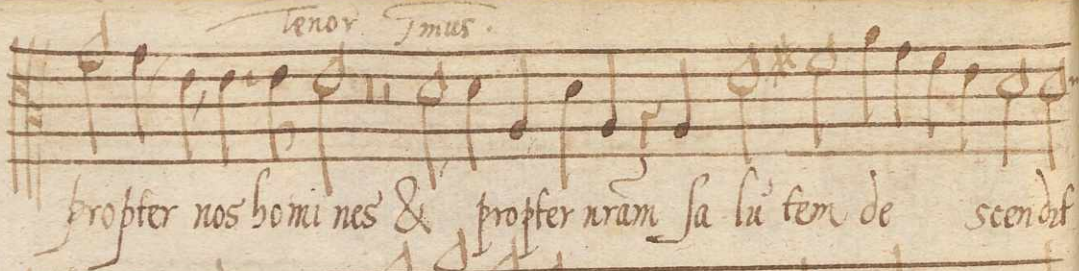 Tenor Imus.
propter nos homines & propter nram sa lu tem de scendit